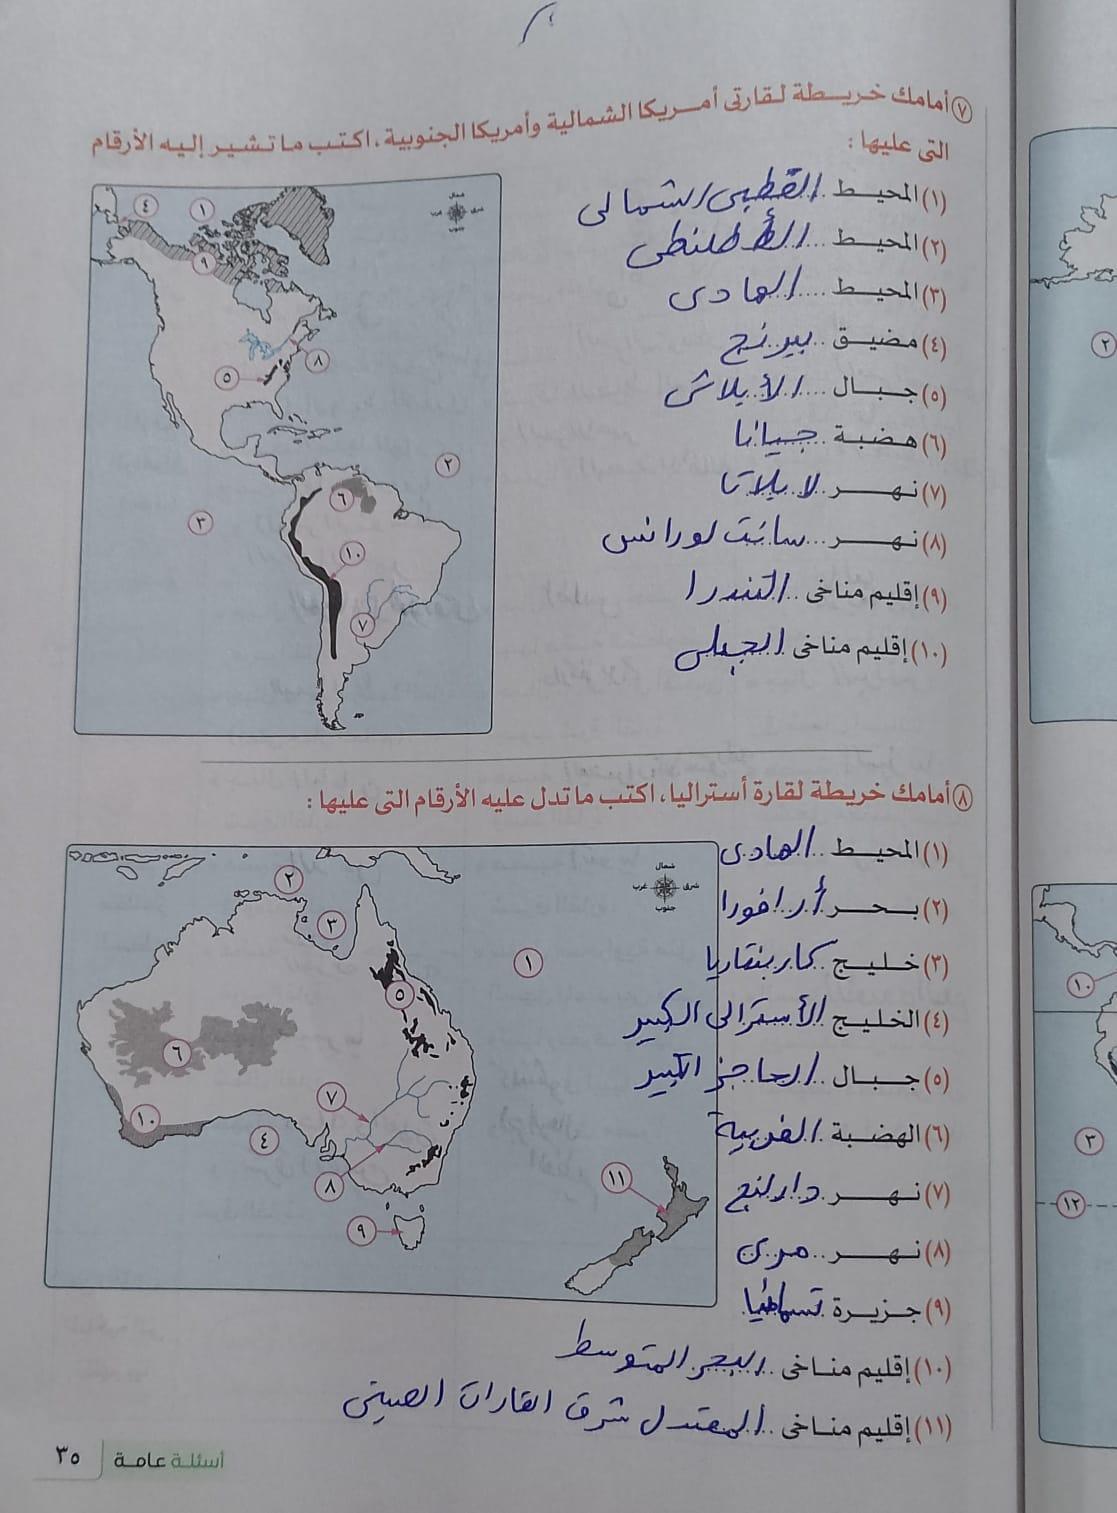 ٧ أمامك خريطة لقارتى أمريكا الشمالية وأمريكا الجنوبية، اكتب ما تشير إليه الأرقام
التى عليها :
(١) المحيط القطبى الشمالى
(٢) المحيط الأطلنطى
(٣) المحيط الهادى
(٤) مضيق بيرنج
(٥) جبال الأبلاش
(٦) هضبة جيانا
(٧) نهر لابلاتا
(٨) نهر سانت لورانس
(٩) إقليم مناخى التندرا
(١٠) إقليم مناخى الجبلى
شمال
شرق
غرب
جنوب
٤
١
٩
٨
٥
٢
٦
٣
١٠
٧
٨ أمامك خريطة لقارة أستراليا، اكتب ما تدل عليه الأرقام التى عليها :
(١) المحيط الهادى
(٢) بحر أرافورا
(٣) خليج كاربنتاريا
(٤) الخليج الأسترالى الكبير
(٥) جبال الحاجز الكبير
(٦) الهضبة الغربية
(٧) نهر دارلنج
(٨) نهر مرى
(٩) جزيرة تسمانيا
(١٠) إقليم مناخى البحر المتوسط
(١١) إقليم مناخى المعتدل شرق القارات الصينى
شمال
شرق
غرب
جنوب
٢
٣
١
٥
٦
٧
١٠
٤
٨
١١
٩
أسئلة عامة
٣٥
٢
١٠
٣
١٢